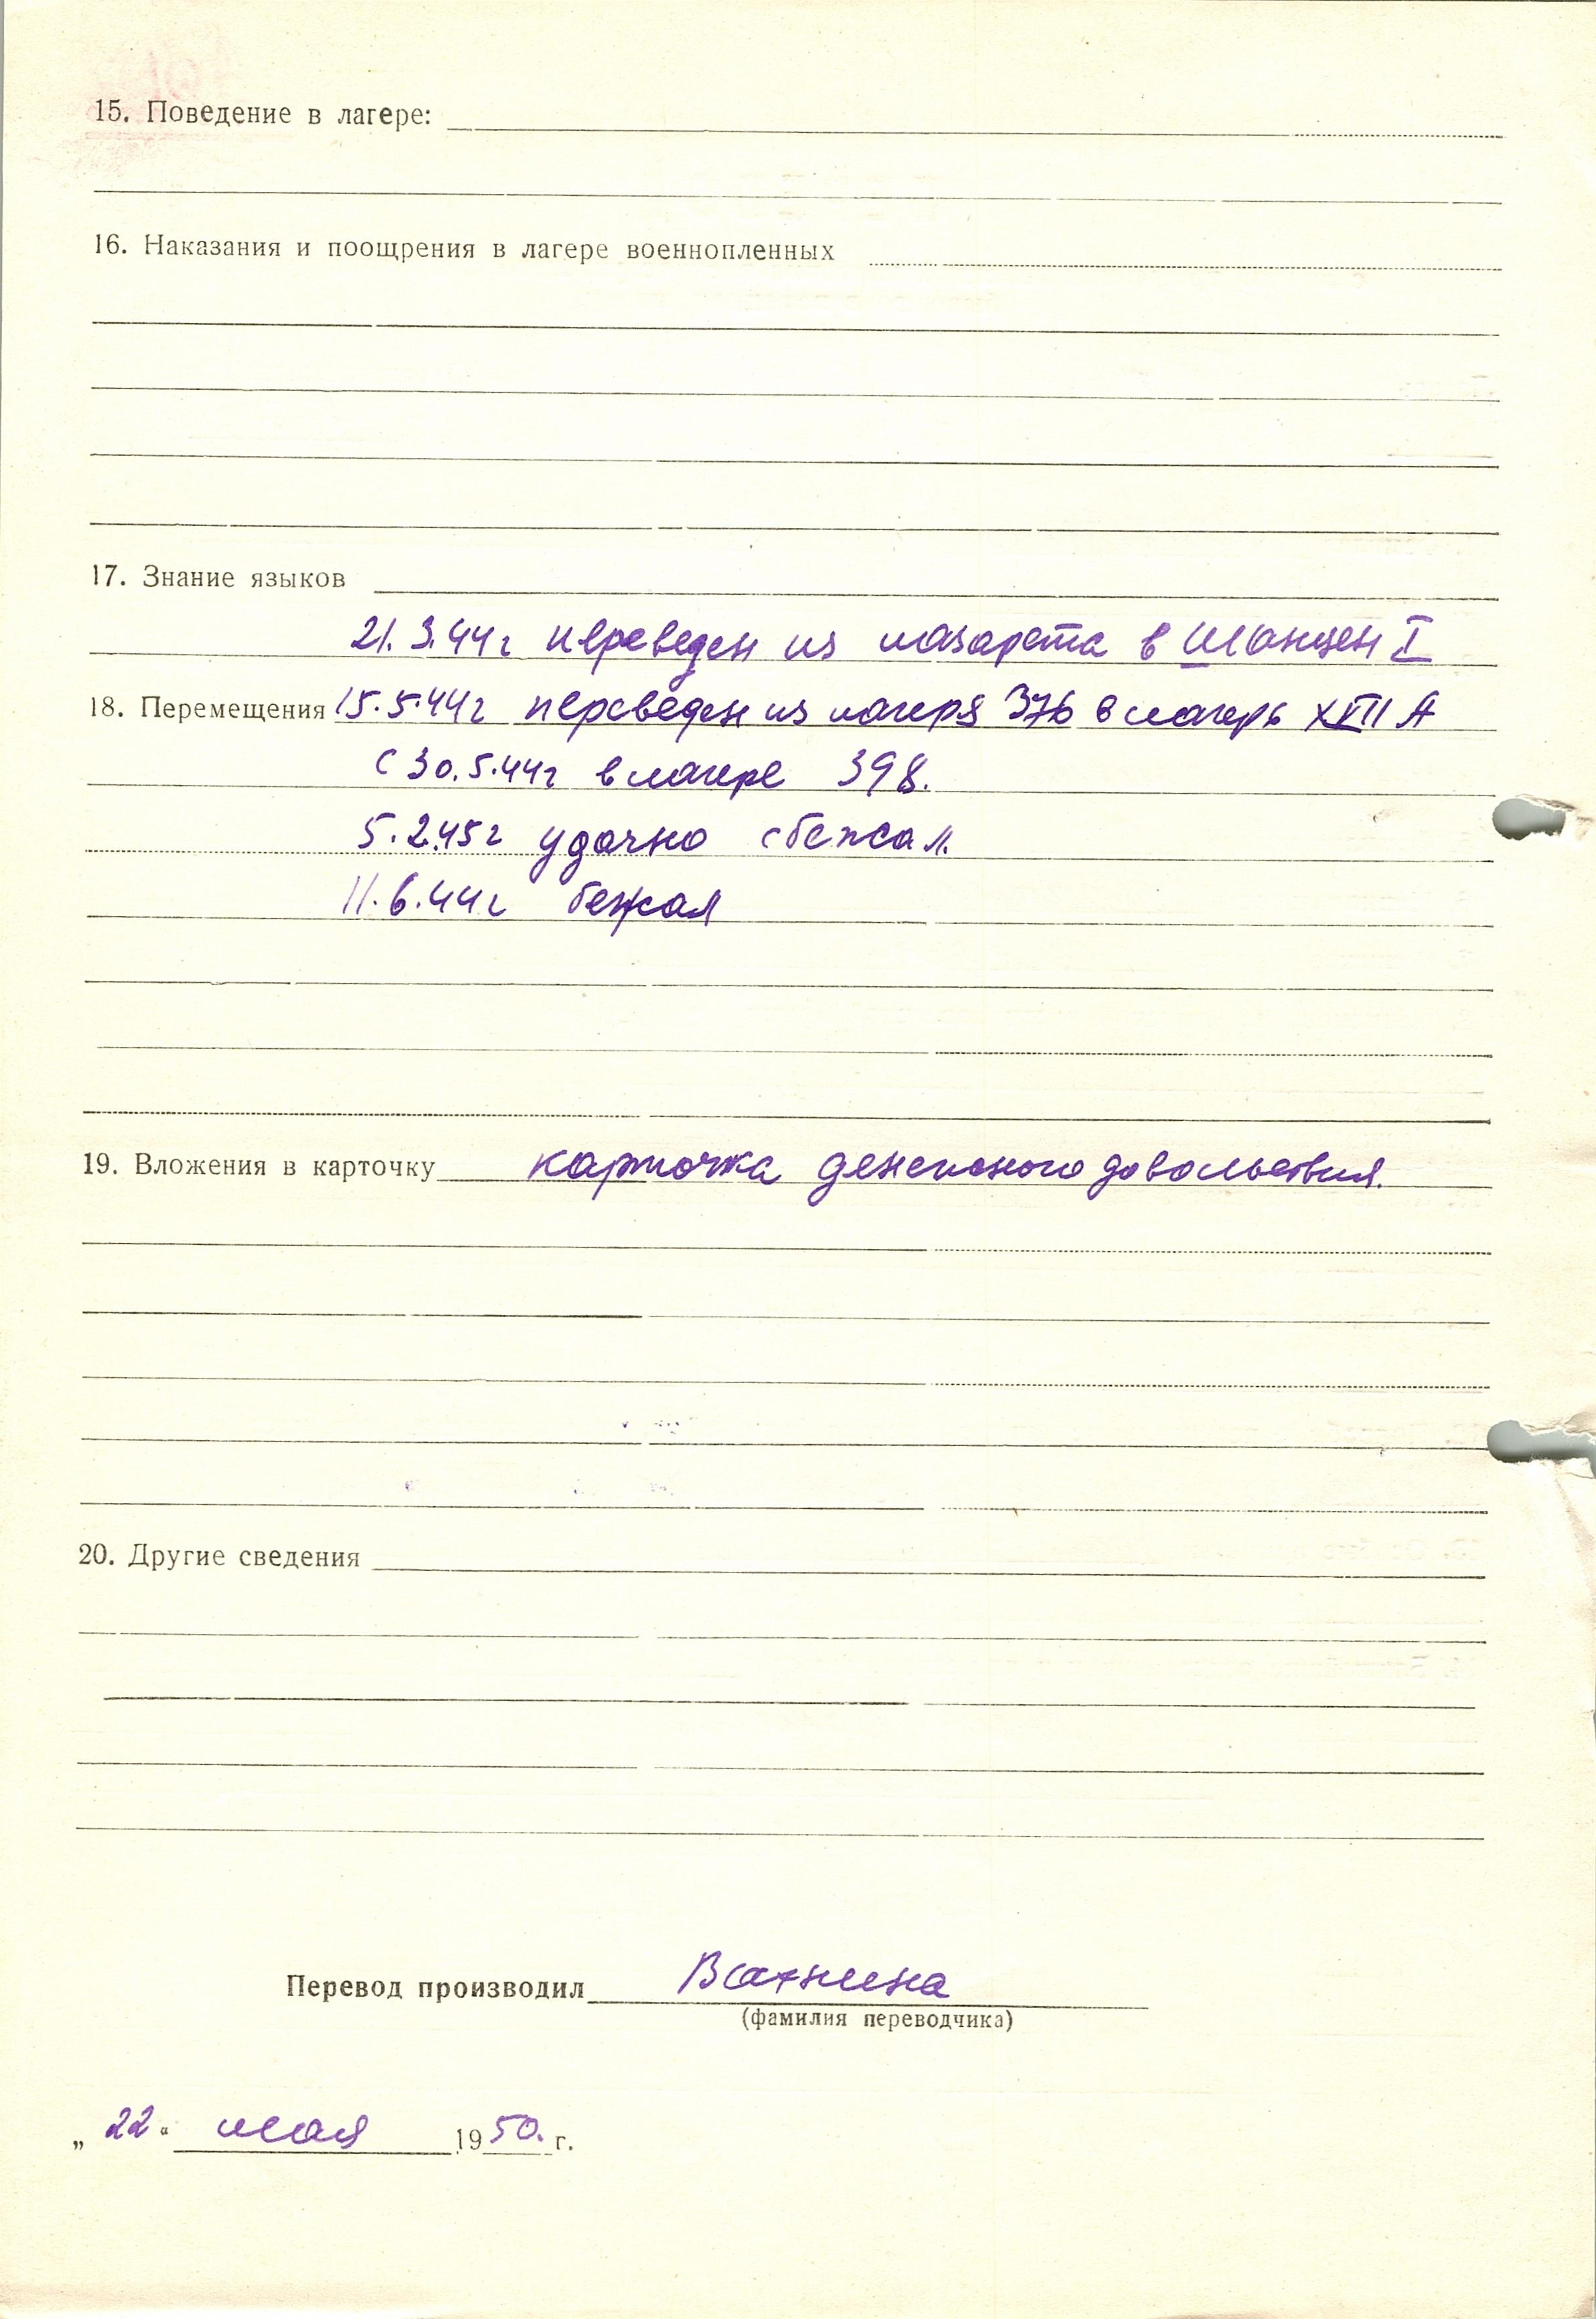 15. Поведение в лагере:
16. Наказания и поощрения в лагере военнопленных
17. Знание языков
21.3.44г переведен из лазарета в Шанцен I
18. Перемещения 15.5.44г переведен из лагеря 376 в лагерь XVII А
С 30.5.44г в лагере 398.
5.2.45г удачно сбежал.
11.6.44г бежал
19. Вложения в карточку карточка денежного довольствия.
20. Другие сведения
Перевод производил
(фамилия переводчика)
„22“ мая 1950. г.